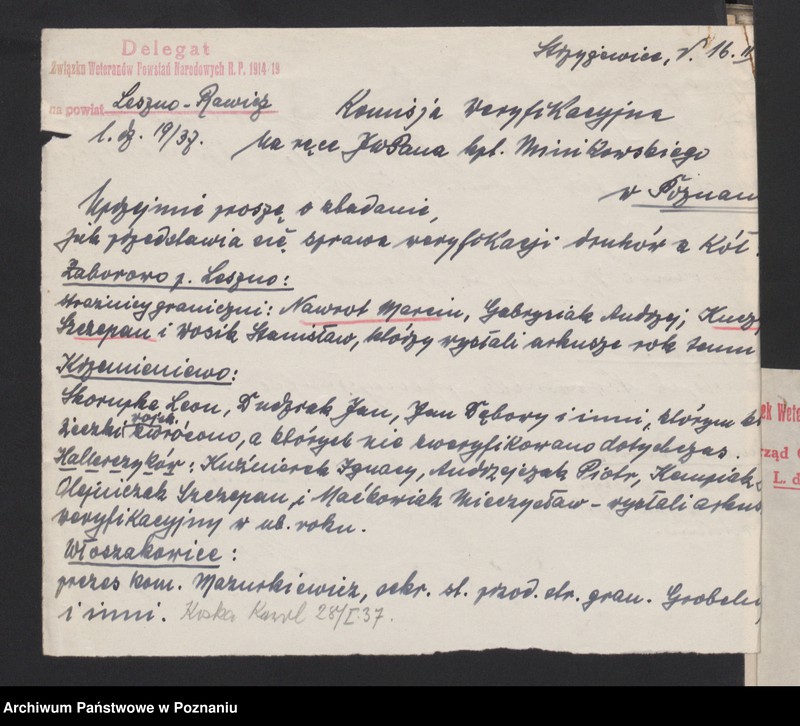 Delegat
Związku Weteranów Powstań Narodowych R. P. 1914-19
na powiat Leszno-Rawicz
l. dz. 19/37.
Strzyżewice, d. 16. II
Komisja Weryfikacyjna
na ręce JWPana kpt. Minikowskiego
w Poznan
Uprzejmie proszę o zbadanie,
jak przedstawia się sprawa weryfikacji druhów z Kół.
Zaborowo p. Leszno:
strażnicy graniczni: Nawrot Marcin, Gabrysiak Andrzej; Kucz
Szczepan i Wosik Stanisław, którzy wysłali arkusze rok temu
Krzemieniewo:
Skorupka Leon, Dudziak Jan, Jan Dębory i inni, którym
wojsk.
zwrócono, a których nie zweryfikowano dotychczas.
Hallerczyków: Kuźnierek Ignacy, Andrzejczak Piotr, Kempiak
Olejniczak Szczepan, i Maćkowiak Mieczysław – wysłali arkus
weryfikacyjny w ub. roku.
Włoszakowice:
prezes kom. Mazurkiewicz, sekr. st. przod. str. gran. Grobel
i inni. Karol 28/I.37.
ek Wete
rząd
L. d
Archiwum Państwowe w Poznaniu